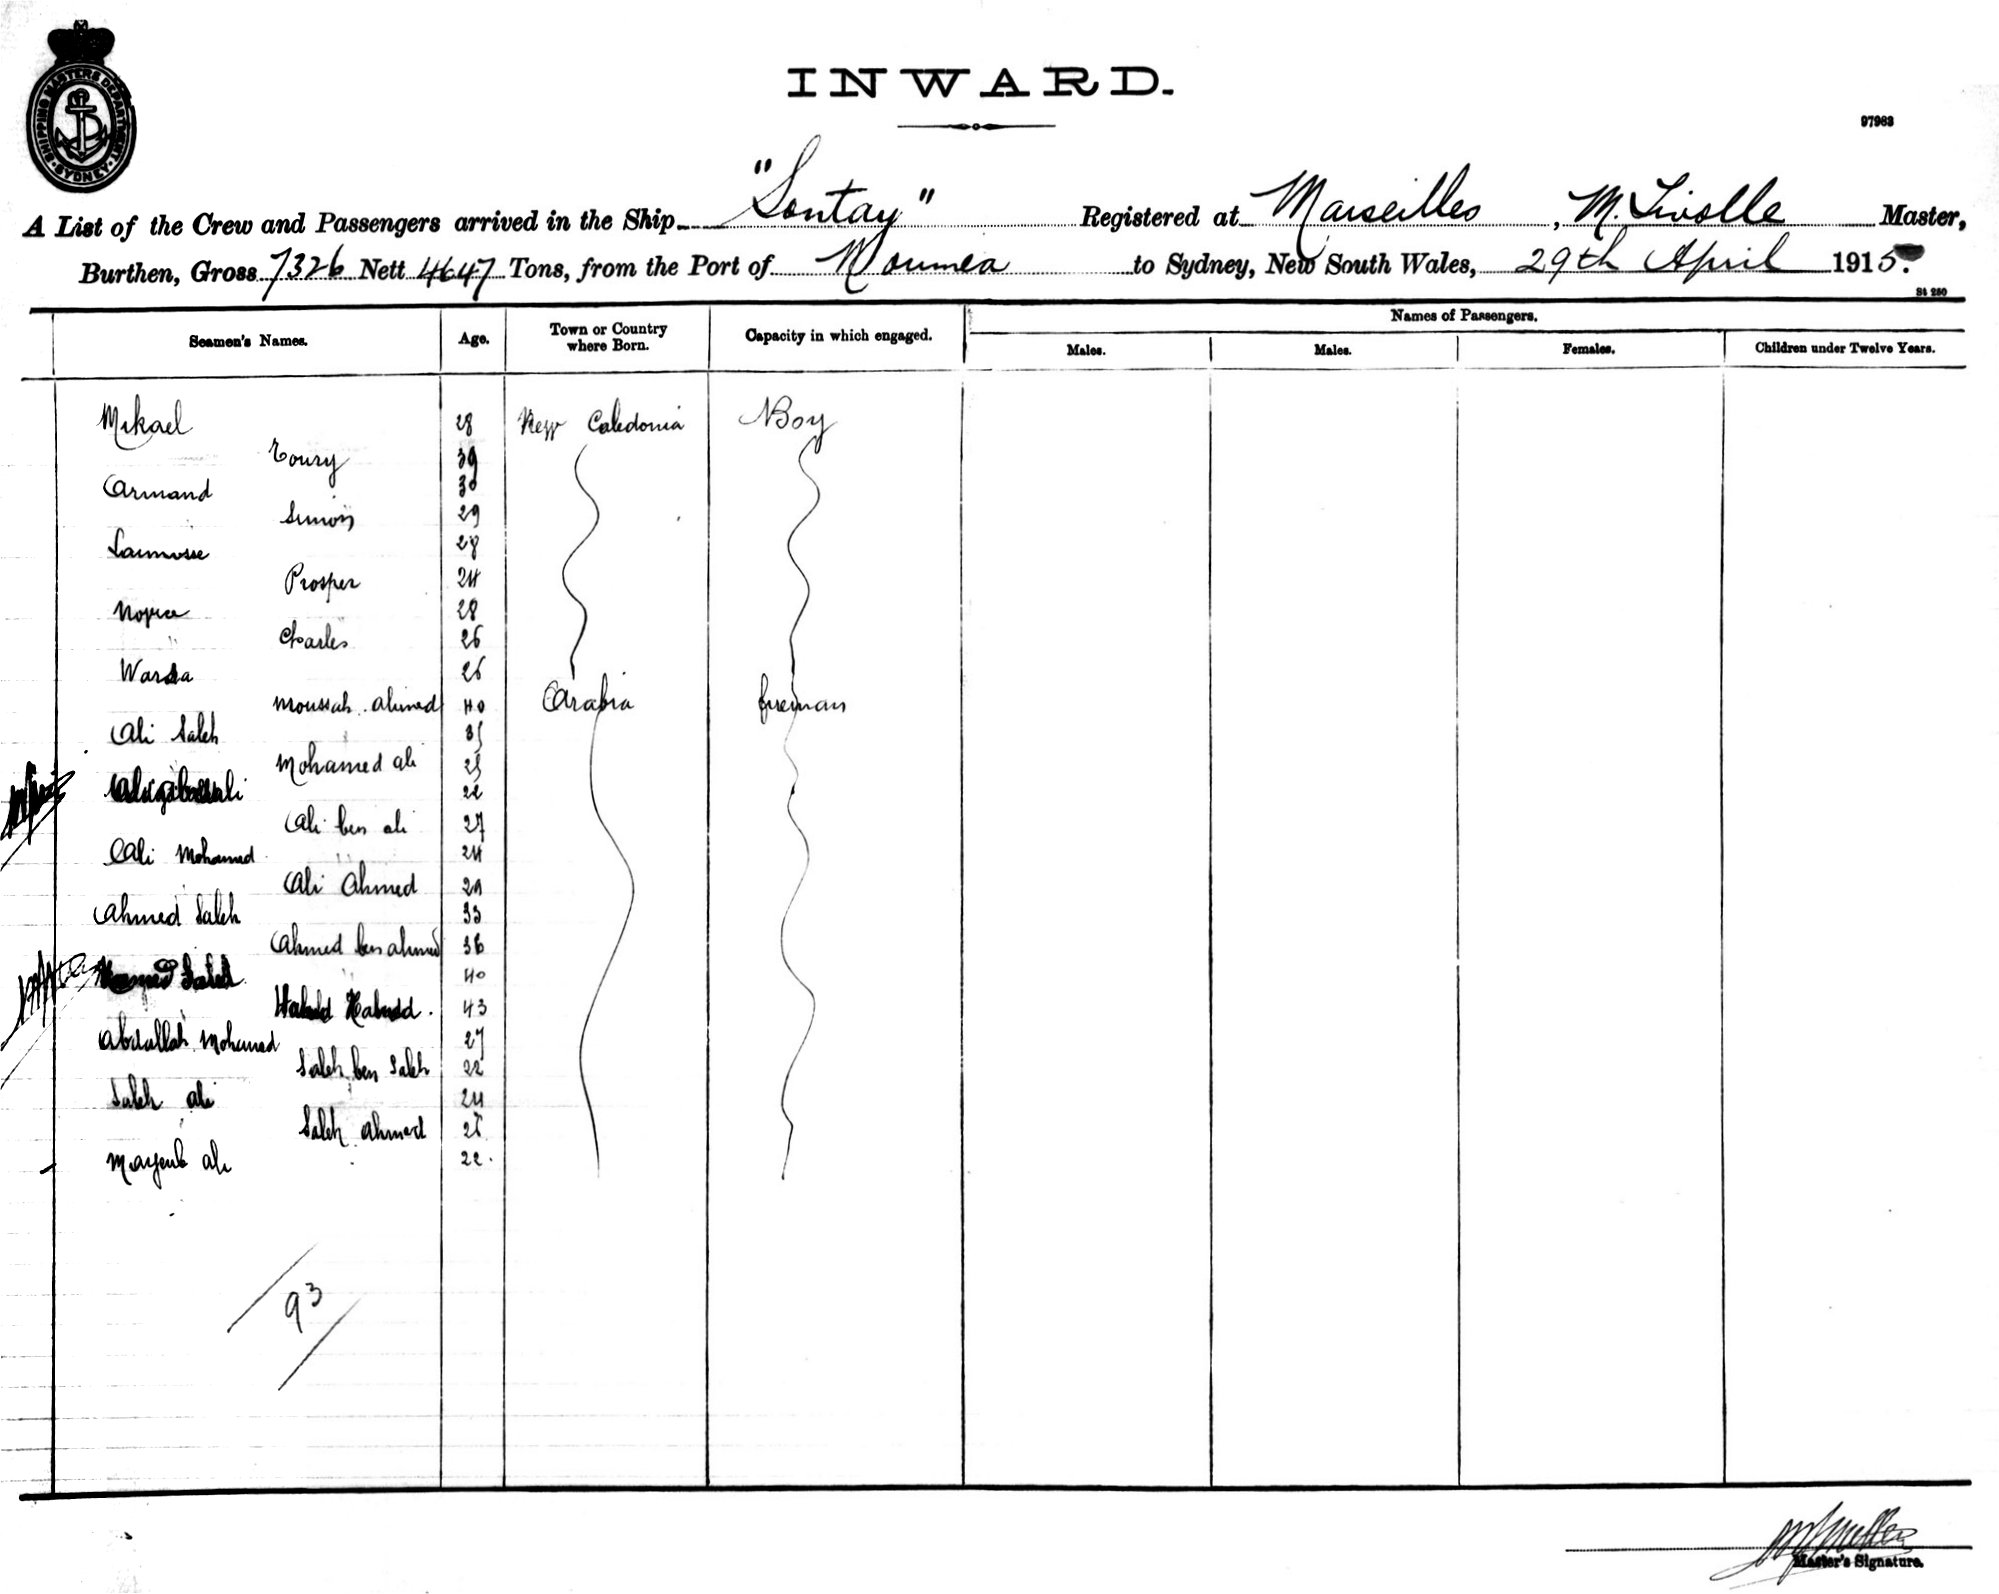 SHIPPING MASTERS DEPARTMENT. SYDNEY.
INWARD.
97963
A List of the Crew and Passengers arrived in the Ship "Sontay" Registered at Marseilles, M. Master,
Burthen, Gross 7326 Nett 4647 Tons, from the Port of Noumea to Sydney, New South Wales, 29th April 1915.
St 250
Seamen's Names. Age. Town or Country where Born. Capacity in which engaged. Names of Passengers.
Males. Males. Females. Children under Twelve Years.
Mikael 28 New Caledonia Boy
Toury 39
Armand 30
Simon 29
28
Prosper 24
28
Charles 26
26
Moussah Ahmed 40 Arabia fireman
Ali Saleh 35
Mohamed ali 25
22
Ali ben ali 27
Ali Mohamed 24
Ali Ahmed 29
Ahmed Saleh 33
Ahmed ben ahmed 36
Saleh 40
43
Abdallah Mohamed 27
Saleh ben Saleh 22
Saleh ali 24
Saleh Ahmed 26
Mayeub ali 22.
93
Master's Signature.